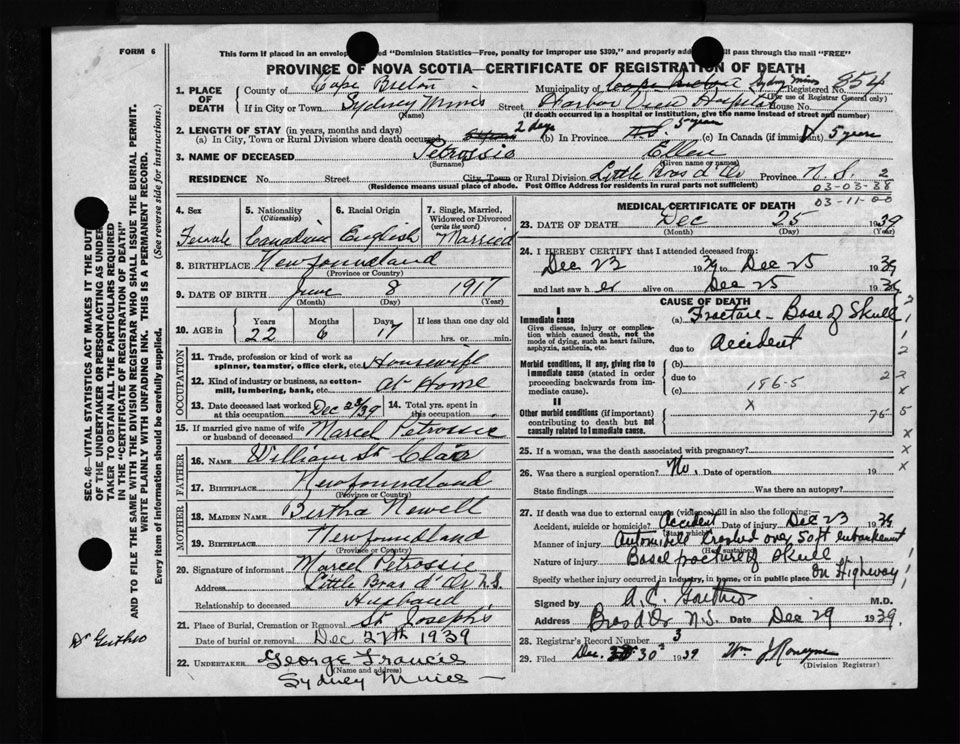 FORM 6
This form if placed in an envelop "Dominion Statistics—Free, penalty for improper use $300," and properly ad ill pass through the mail "FREE"
PROVINCE OF NOVA SCOTIA—CERTIFICATE OF REGISTRATION OF DEATH
1. PLACE OF DEATH County of Cape Breton Municipality of Cape Breton Sydney Mines Registered No. 854
(For use of Registrar General only)
If in City or Town Sydney Mines Street Harbor View Hospital House No.
(Name) (If death occurred in a hospital or institution, give the name instead of street and number)
2. LENGTH OF STAY (in years, months and days)
(a) In City, Town or Rural Division where death occurred 2 days (b) In Province N.S. 5 years (c) In Canada (if immigrant) 5 years
3. NAME OF DECEASED Petrossie Ellen
(Surname) (Given name or names)
RESIDENCE No. Street City, Town or Rural Division Little Bras d'Or Province N.S. 2
(Residence means usual place of abode. Post Office Address for residents in rural parts not sufficient)
03-03-88
03-11-00
4. Sex Female
5. Nationality (Citizenship) Canadian
6. Racial Origin English
7. Single, Married, Widowed or Divorced (write the word) Married
8. BIRTHPLACE Newfoundland
(Province or Country)
9. DATE OF BIRTH June 8 1917
(Month) (Day) (Year)
10. AGE in Years 22 Months 6 Days 17 If less than one day old hrs. or min.
OCCUPATION
11. Trade, profession or kind of work as spinner, teamster, office clerk, etc. Housewife
12. Kind of industry or business, as cotton-mill, lumbering, bank, etc. At Home
13. Date deceased last worked at this occupation Dec 23/39 14. Total yrs. spent in this occupation
15. If married give name of wife or husband of deceased Marcel Petrossie
FATHER
16. NAME William St Clair
17. BIRTHPLACE Newfoundland
(Province or Country)
MOTHER
18. MAIDEN NAME Bertha Newell
19. BIRTHPLACE Newfoundland
(Province or Country)
20. Signature of informant Marcel Petrossie
Address Little Bras d'Or N.S.
Relationship to deceased Husband
21. Place of Burial, Cremation or Removal St Joseph's
Date of burial or removal Dec 27th 1939
22. UNDERTAKER George Francis
(Name and address)
Sydney Mines
MEDICAL CERTIFICATE OF DEATH
23. DATE OF DEATH Dec 25 1939
(Month) (Day) (Year)
24. I HEREBY CERTIFY that I attended deceased from:
Dec 23 1939 to Dec 25 1939
and last saw her alive on Dec 25 1939
CAUSE OF DEATH
I
Immediate cause (a) Fracture - Base of Skull
Give disease, injury or complication which caused death, not the mode of dying, such as heart failure, asphyxia, asthenia, etc.
due to Accident
Morbid conditions, if any, giving rise to immediate cause (stated in order proceeding backwards from immediate cause).
(b)
due to
(c) 186-5
II
Other morbid conditions (if important) contributing to death but not causally related to immediate cause.
x
76-5
25. If a woman, was the death associated with pregnancy?
26. Was there a surgical operation? No. Date of operation 19
State findings Was there an autopsy?
27. If death was due to external causes (violence) fill in also the following:
Accident, suicide or homicide? Accident Date of injury Dec 23 1939
(State which)
Manner of injury Automobile crashed over 50 ft embankment
Nature of injury Basal fracture of Skull
Specify whether injury occurred in industry, in home, or in public place On Highway
Signed by M.D.
Address Bras d'Or N.S. Date Dec 29 1939.
28. Registrar's Record Number 3
29. Filed Dec. 30 1939 Wm
(Division Registrar)
SEC. 46—VITAL STATISTICS ACT MAKES IT THE DUTY OF THE UNDERTAKER OR PERSON ACTING AS UNDERTAKER TO OBTAIN ALL THE PARTICULARS REQUIRED IN THE "CERTIFICATE OF REGISTRATION OF DEATH" AND TO FILE THE SAME WITH THE DIVISION REGISTRAR WHO SHALL ISSUE THE BURIAL PERMIT.
WRITE PLAINLY WITH UNFADING INK. THIS IS A PERMANENT RECORD.
Every item of information should be carefully supplied. (See reverse side for instructions.)